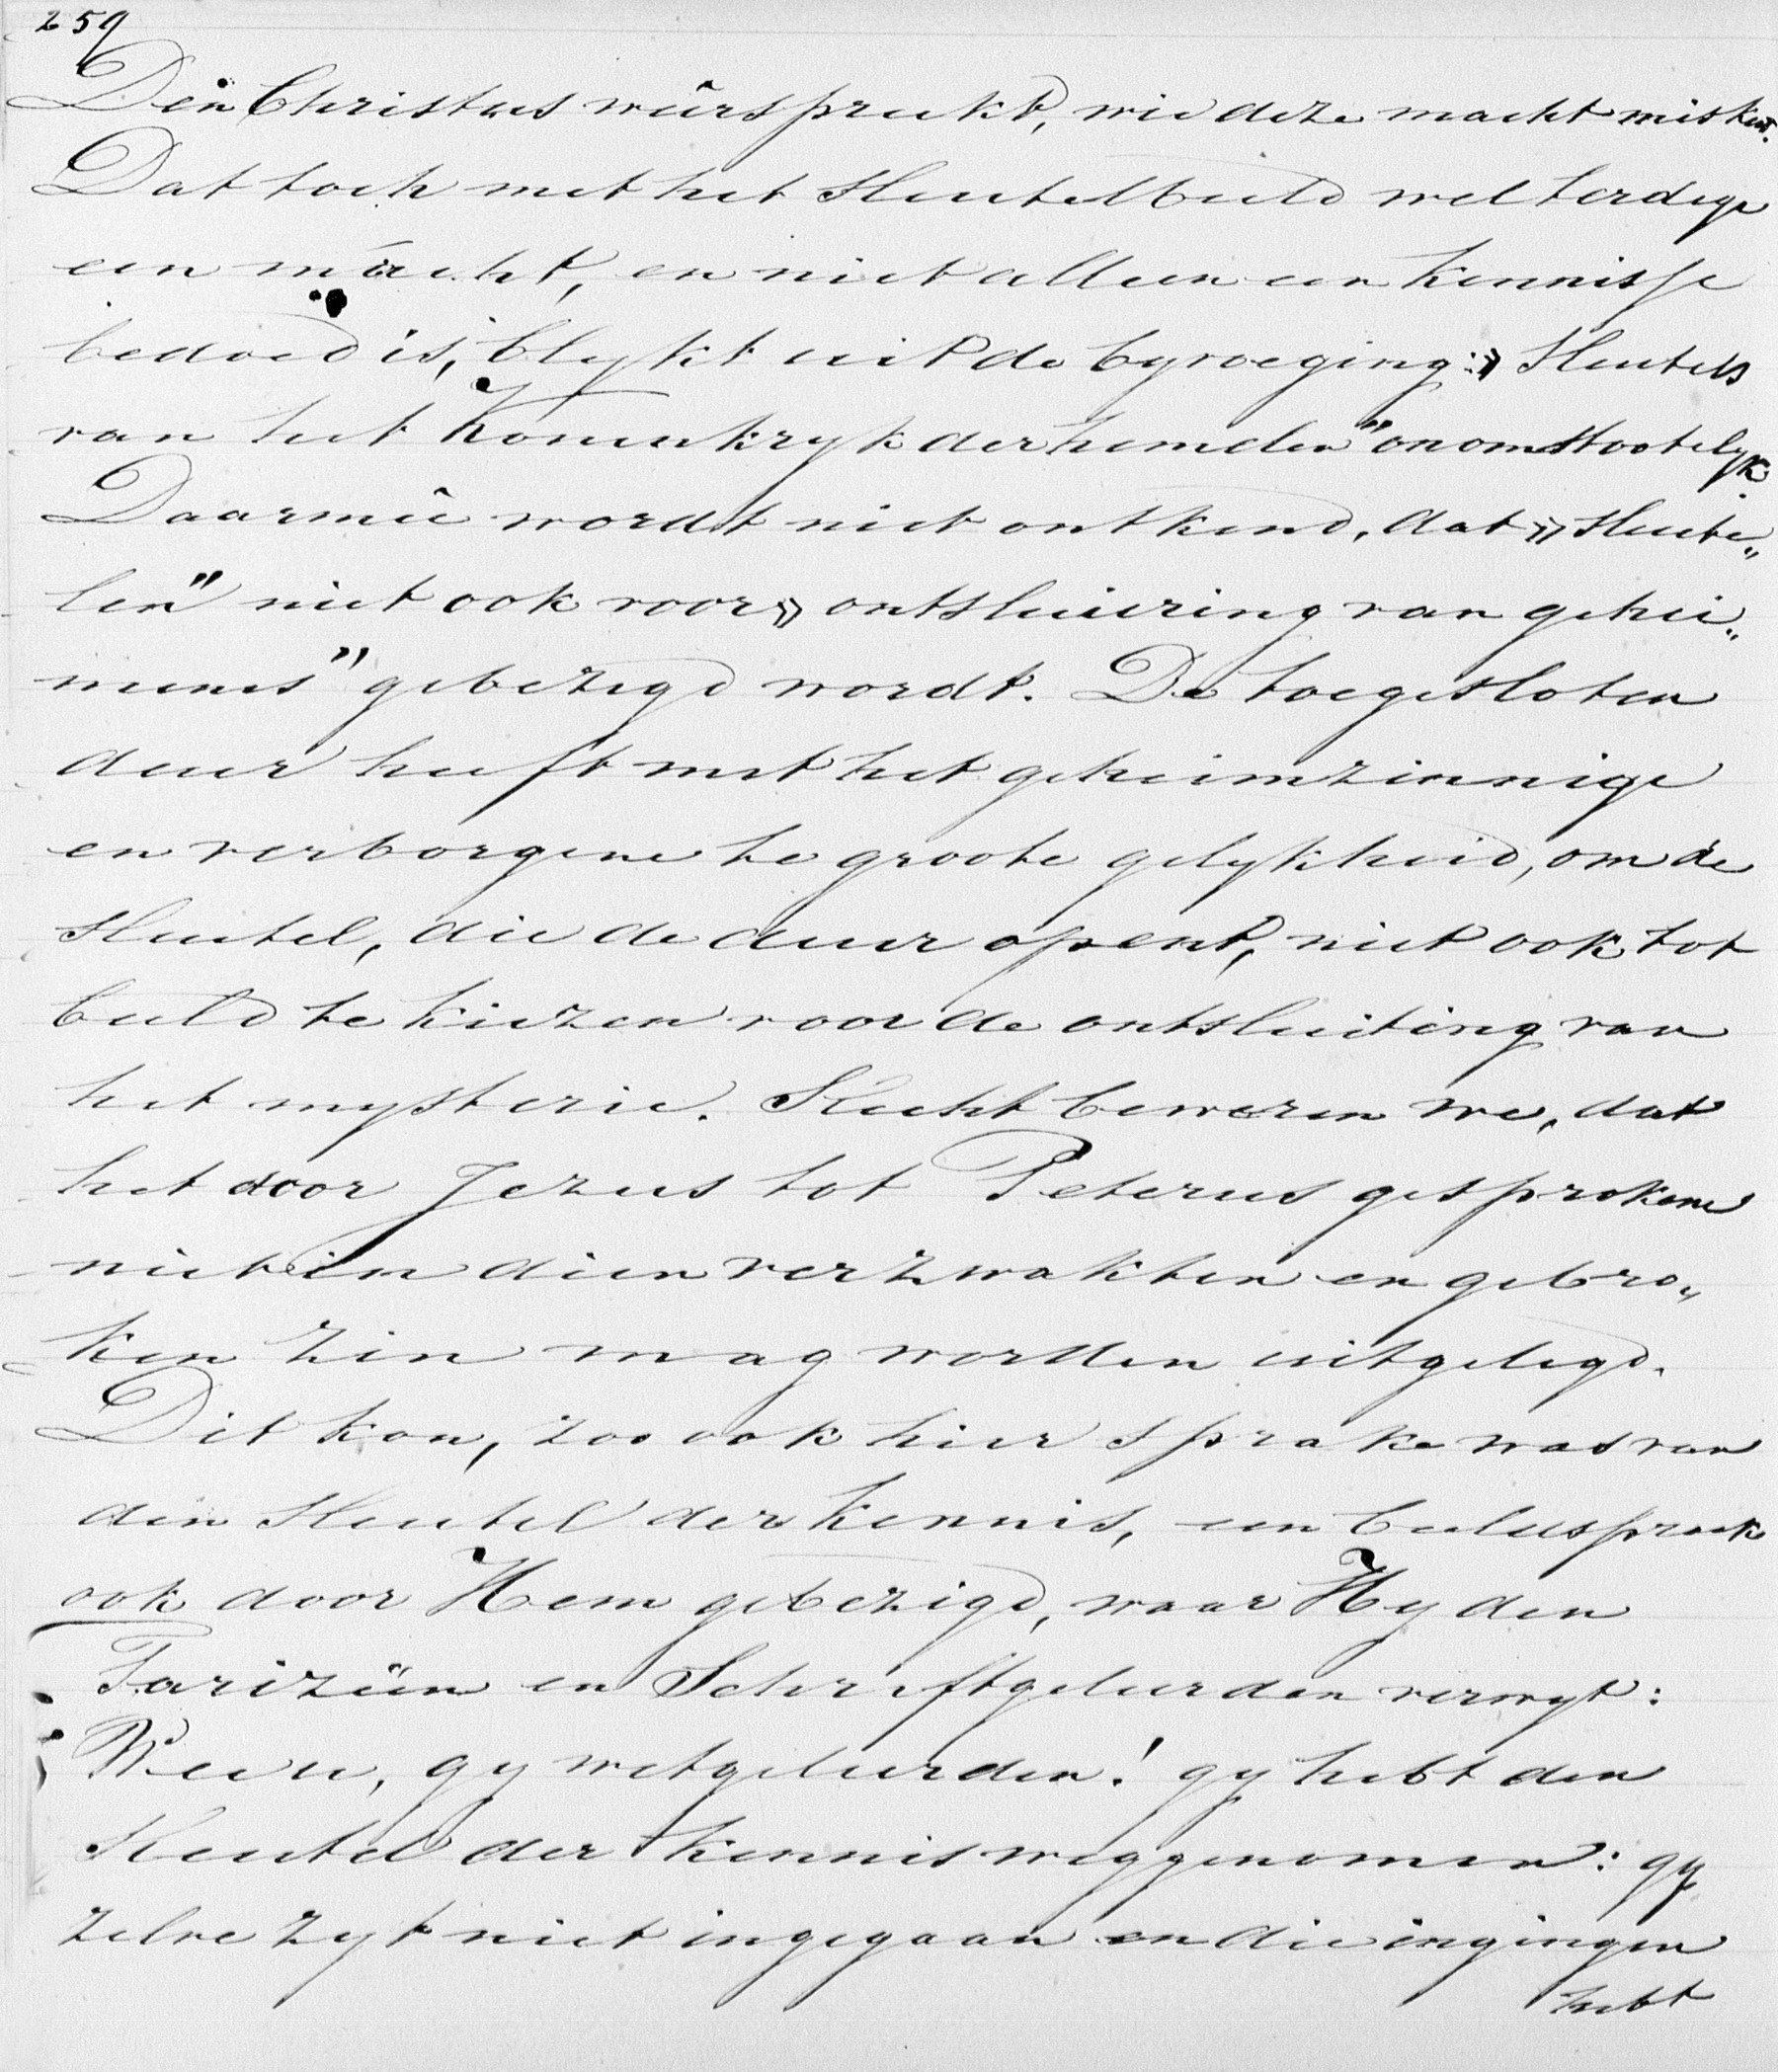 259
Dën Christus weêrspreekt, wie deze macht miskent.
Dat toch met het sleutelbeeld wel terdege
een màcht, en niet alleen een kennisse
bedoeld is, blykt uit de byvoeging: » Sleutels
van het Koninkryk der hemelen" onomstootelyk.
Daarmeê wordt niet ontkend, dat » sleute„
len" niet ook voor » ontsluiering van gehei„
menis" gebezigd wordt. De toegesloten
deur heeft met het geheimzinnige
en verborgene te groote gelykheid, om de
sleutel, die de deur opent, niet ook tot
beeld te kiezen voor de ontsluiting van
het mysterie. Slecht beweren we, dat
het door Jezus tot Peterus gesprokene
niet in dien verzwakten en gebro„
ken zin mag worden uitgelegd.
Dit kon, zoo ook hier sprake was van
den sleutel der kennis, een beeldspraak
ook door Hem gebezigd, waar Hy den
Farizeën en Schriftgeleerden verwyt:
Wee u, gy wetgeleerden! gy hebt den
Sleutel der kennis weggenomen: gy
zelve zyt niet ingegaan en die ingingen
hebt